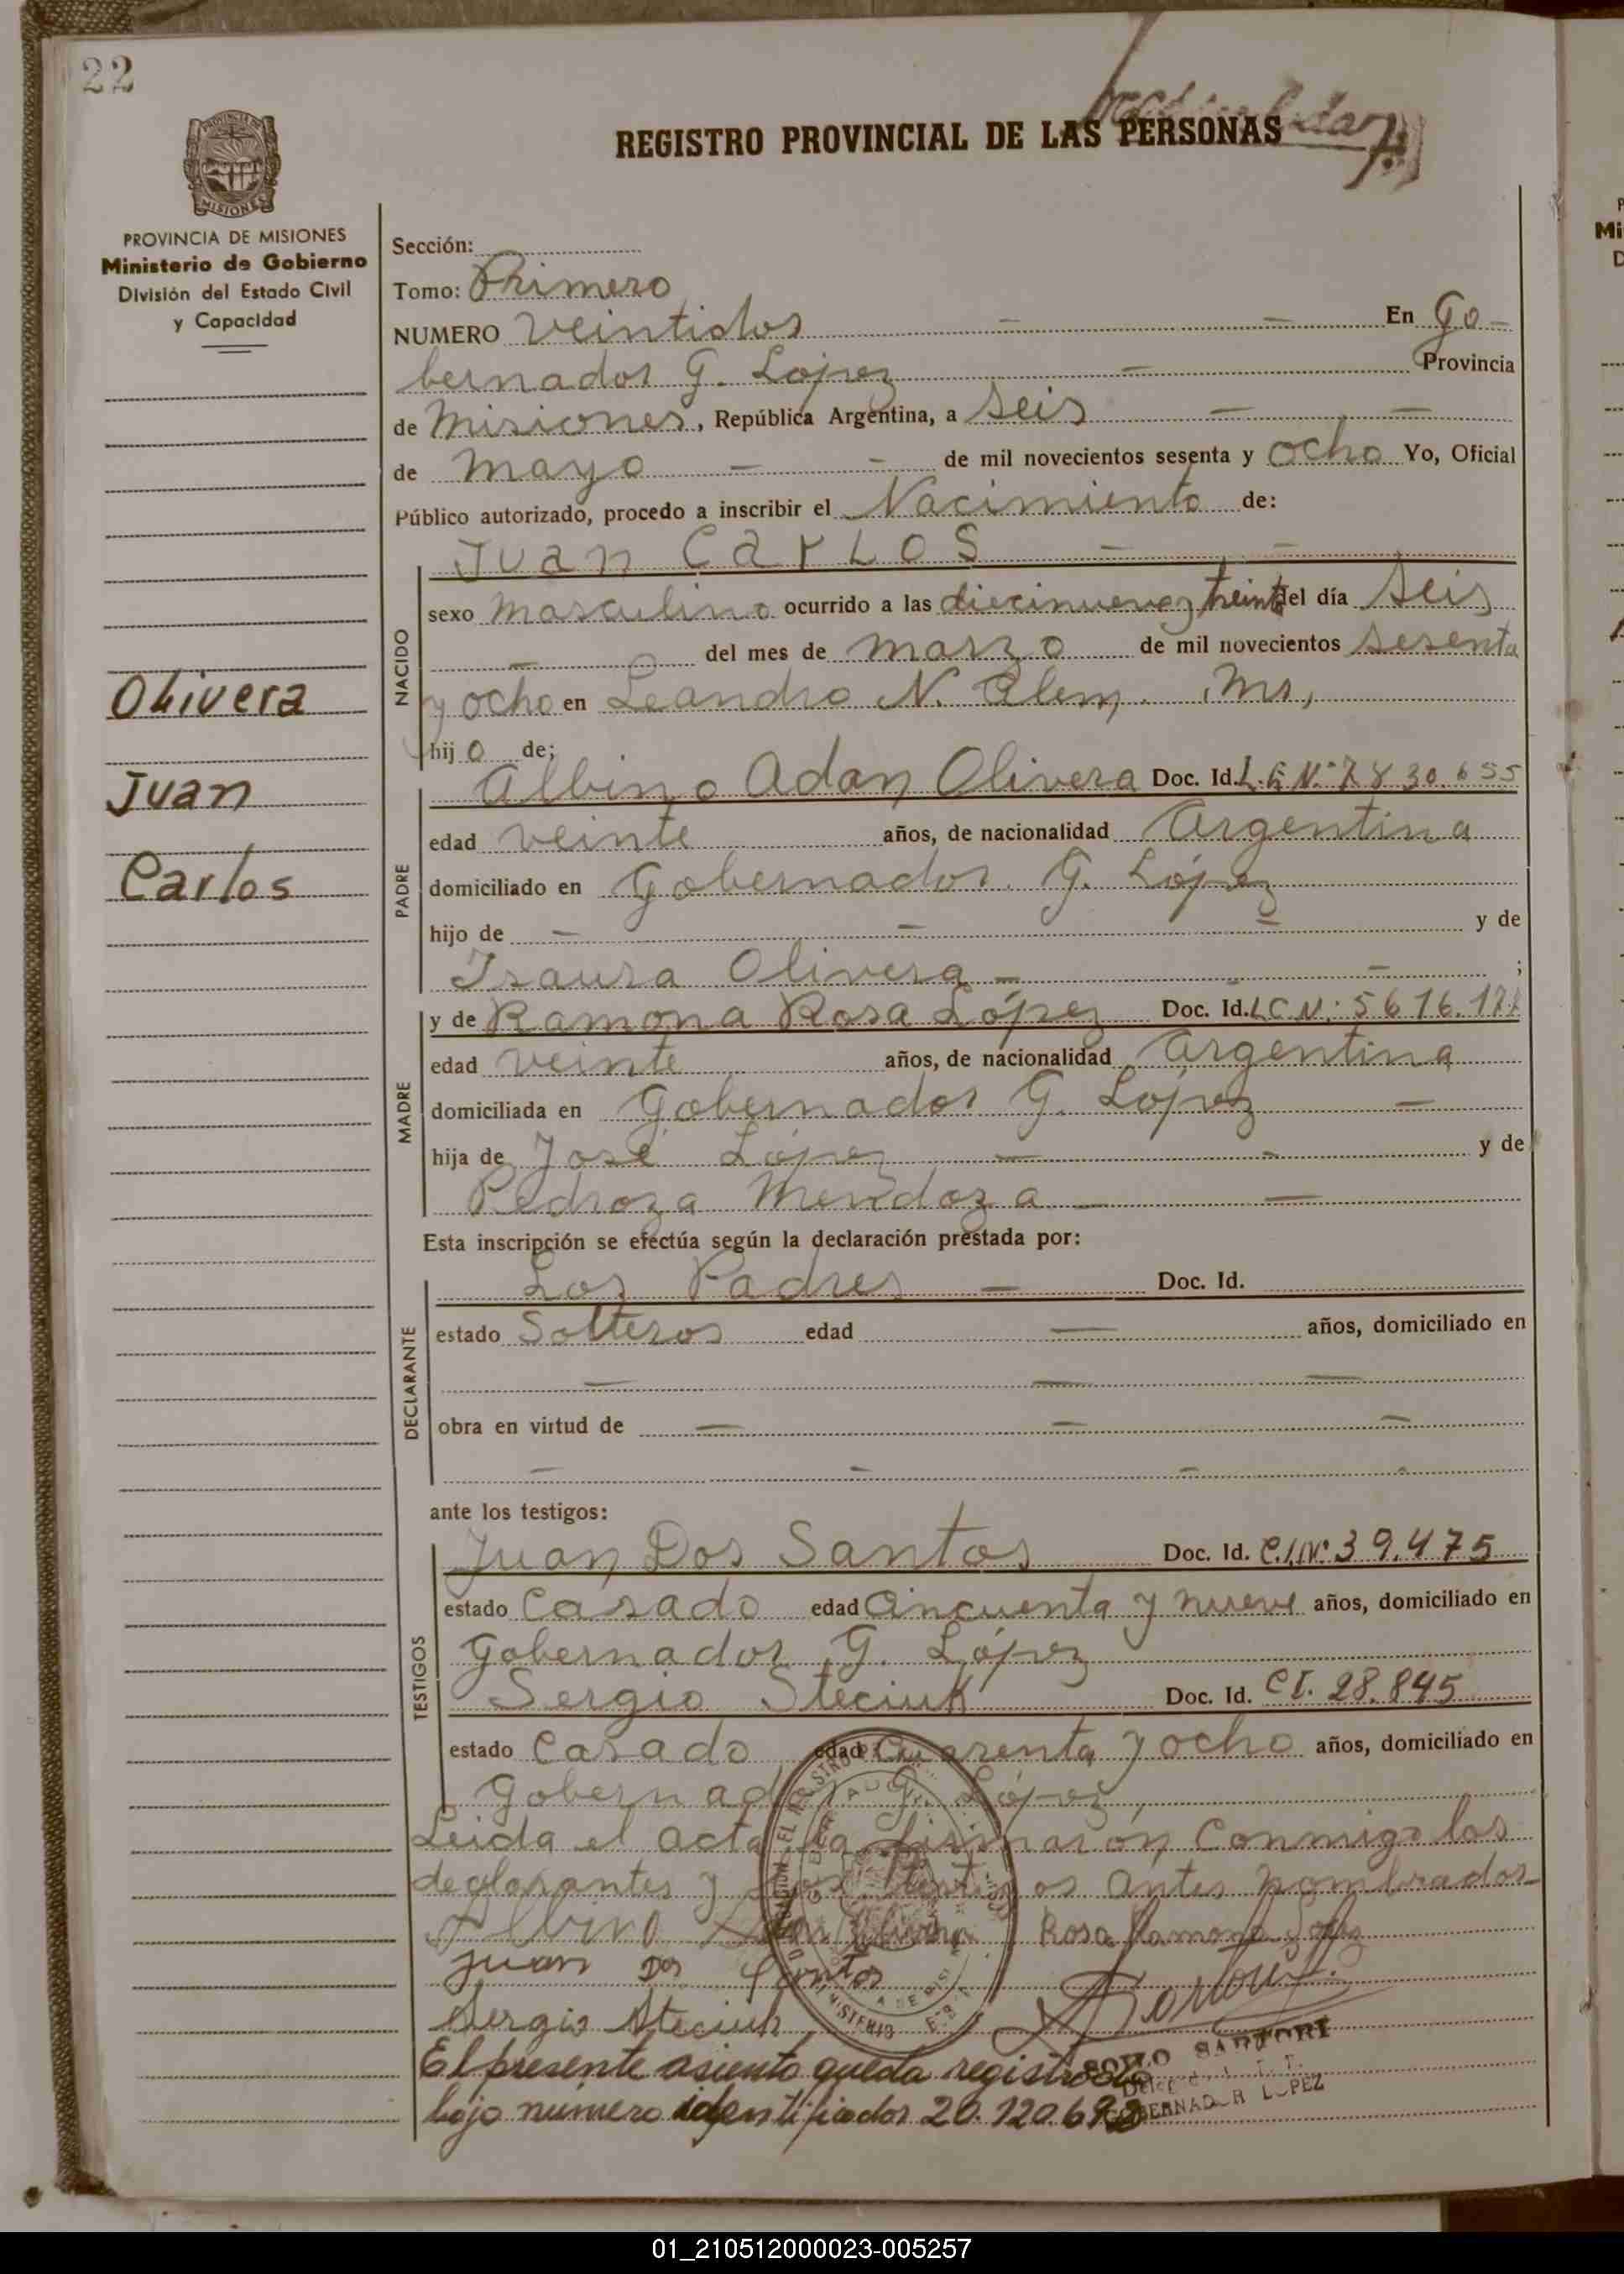 22
REGISTRO PROVINCIAL DE LAS PERSONAS
PROVINCIA DE MISIONES
Ministerio de Gobierno
División del Estado Civil
y Capacidad
Olivera
Juan
Carlos
Sección:
Tomo: Primero
NUMERO veintidos — — En Go-
bernador G. López — Provincia
de Misiones, República Argentina, a seis — —
de mayo — - de mil novecientos sesenta y ocho Yo, Oficial
Público autorizado, procedo a inscribir el Nacimiento de:
Juan Carlos — —
NACIDO
sexo masculino ocurrido a las diecinueve y treinta del día seis
— del mes de marzo de mil novecientos sesenta
y ocho en Leandro N. Alem. Ms,
hijo de;
PADRE
Albino Adan Olivera Doc. Id. L.E.N° 7.830.655
edad veinte años, de nacionalidad Argentina
domiciliado en Gobernador G. López
hijo de — — — y de
Isaura Olivera — — — ;
MADRE
y de Ramona Rosa López Doc. Id. L.C.N. 5616.
edad veinte años, de nacionalidad Argentina
domiciliada en Gobernador G. López —
hija de José López — - y de
Pedroza Mendoza — —
Esta inscripción se efectúa según la declaración prestada por:
DECLARANTE
Los Padres — Doc. Id.
estado Solteros edad — años, domiciliado en
— — —
obra en virtud de — — —
— — — -
ante los testigos:
TESTIGOS
Juan Dos Santos Doc. Id. C.I.N° 39.475
estado Casado edad Cincuenta y nueve años, domiciliado en
Gobernador G. López
Sergio Steciuk Doc. Id. CI. 28.845
estado Casado edad Cuarenta y ocho años, domiciliado en
Gobernador G. López
Leida el acta la firmarón conmigo los
declarantes y los testigos antes nombrados
Albino Adan Olivera Rosa Ramona López
Juan Dos Santos
Sergio Steciuk
SARTORI
GOBERNADOR LOPEZ
El presente asiento queda registrado
bajo número identificador 20.120.692
01_210512000023-005257